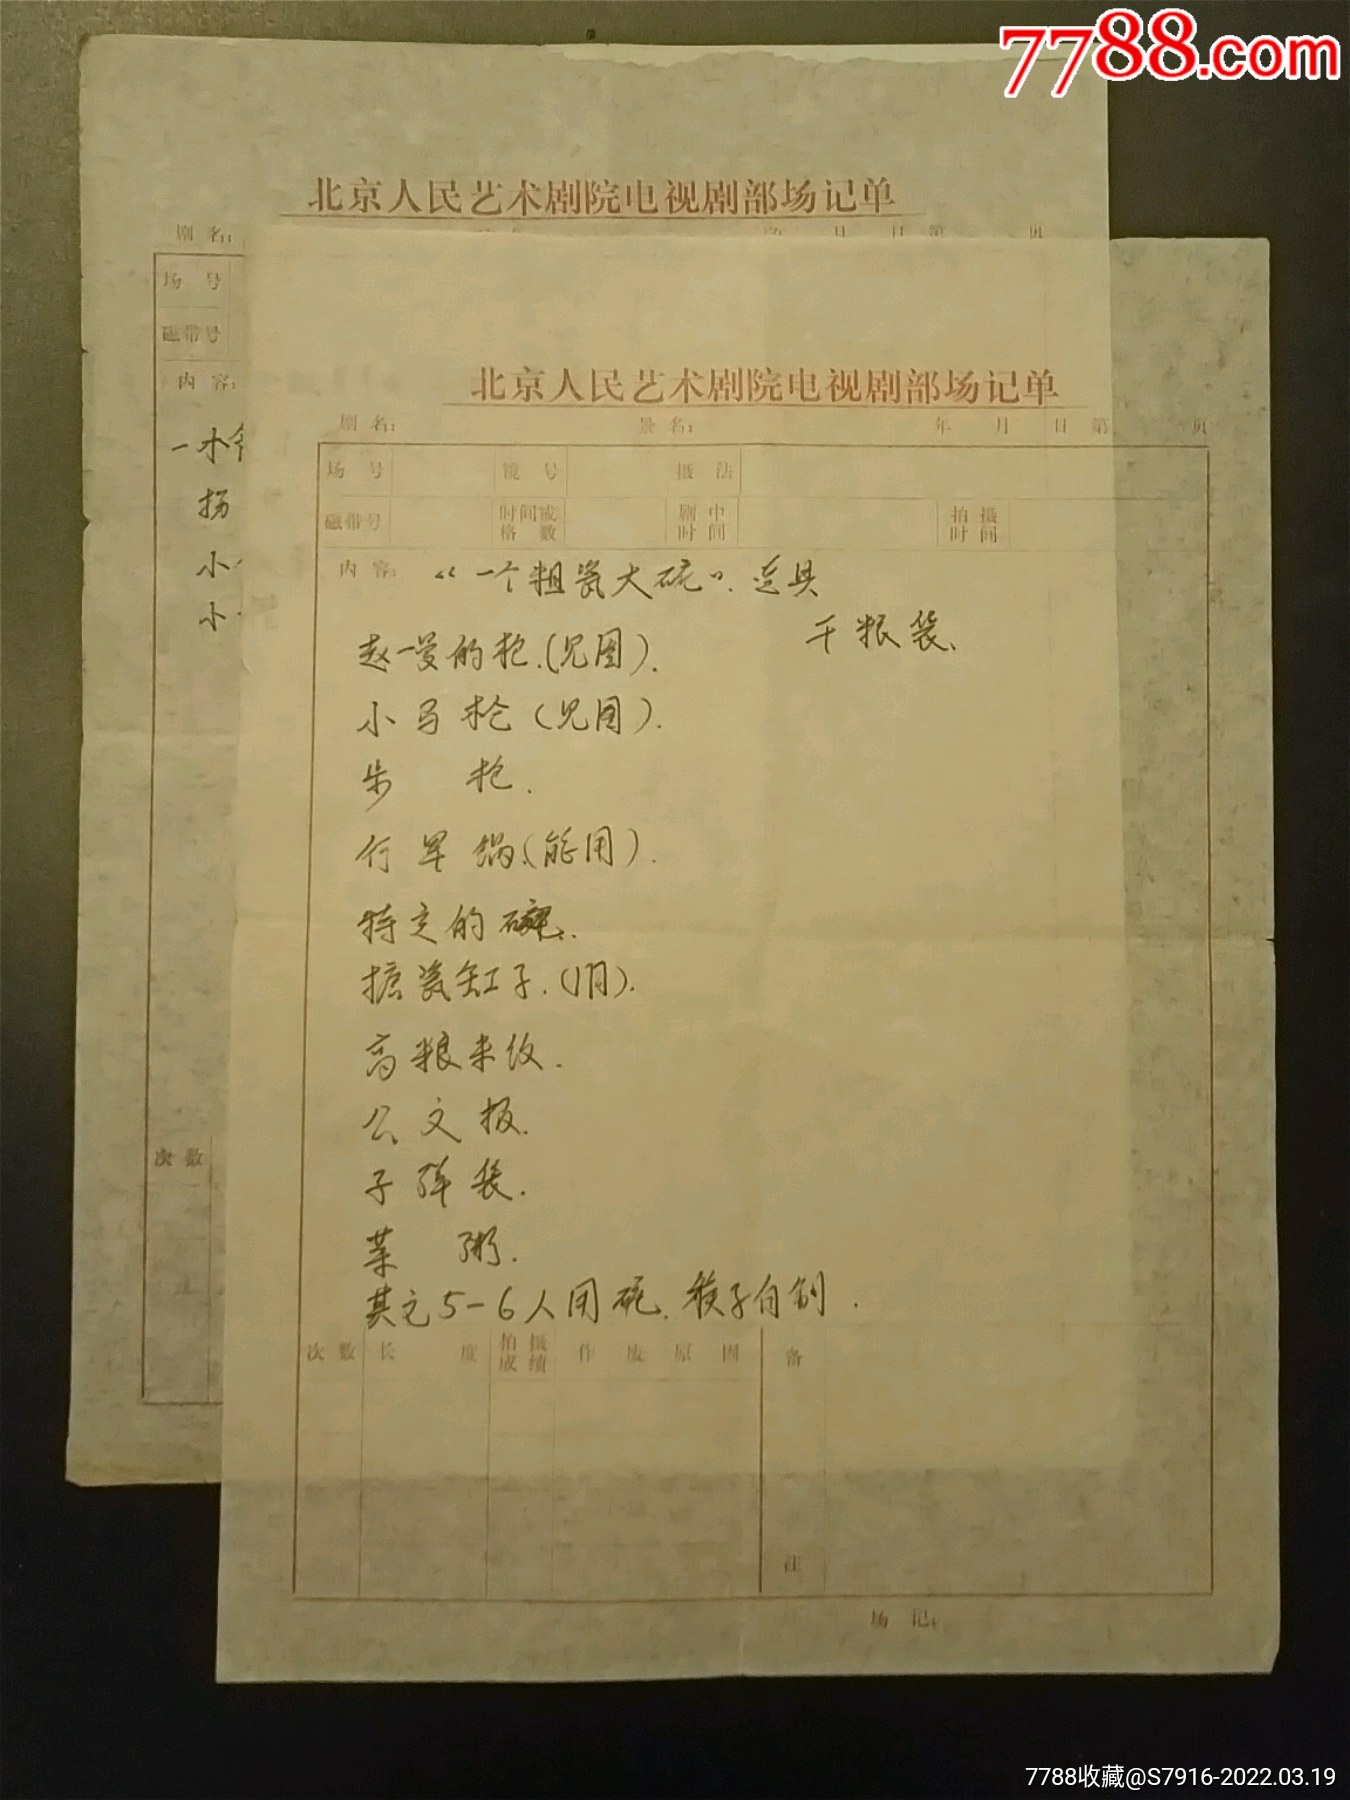 7788.com
北京人民艺术剧院电视剧部场记单
剧 名：
年 月 日 第 页
场 号
磁带号
内 容：
一水
拐
小
小
次 数
北京人民艺术剧院电视剧部场记单
剧 名： 景 名： 年 月 日 第 页
场 号 镜 号 摄 法
磁带号 时间或格数 剧中时间 拍摄时间
内 容： “一个粗瓷大碗”. 道具
干粮袋、
赵一曼的枪.(见图).
小马枪(见图).
步 枪.
行军锅、(能用).
特定的碗.
搪瓷缸子.(1用).
高粮米饭.
公文报.
子弹袋.
菜 粥.
其它5-6人用碗. 筷子自制.
次 数 长 度 拍摄成绩 作 废 原 因 备
注
场 记：
7788收藏@S7916-2022.03.19